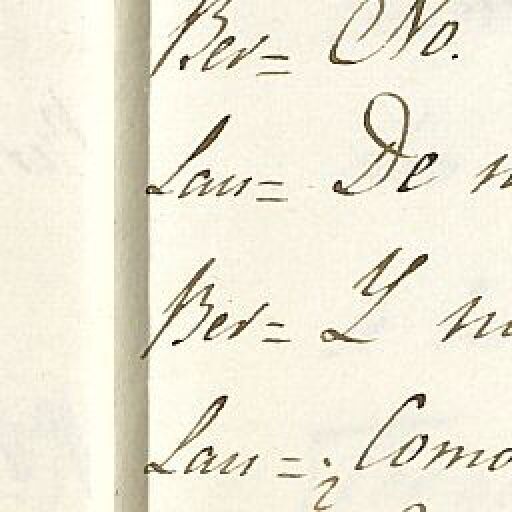 Ber= No.
Lau= De
Ber= Y
Lau= ¿Como